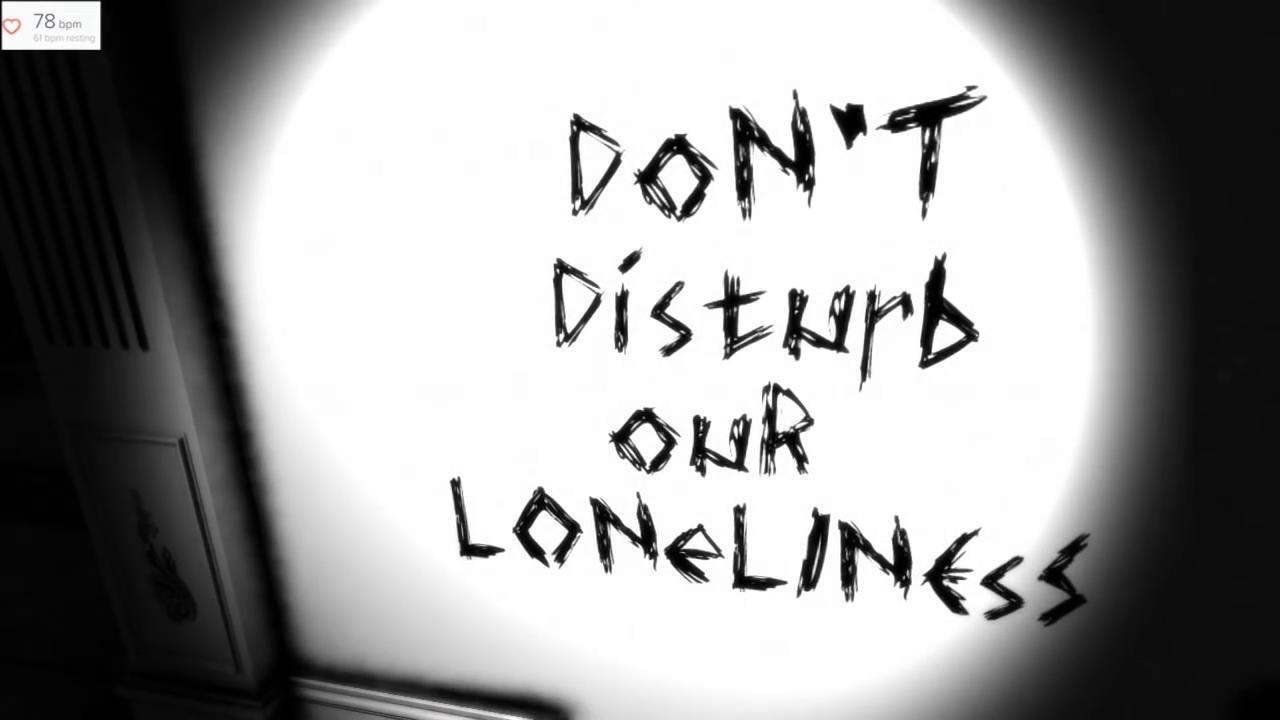 78 bpm
61 bpm resting
DON'T
Disturb
OUR
LONeLINESS